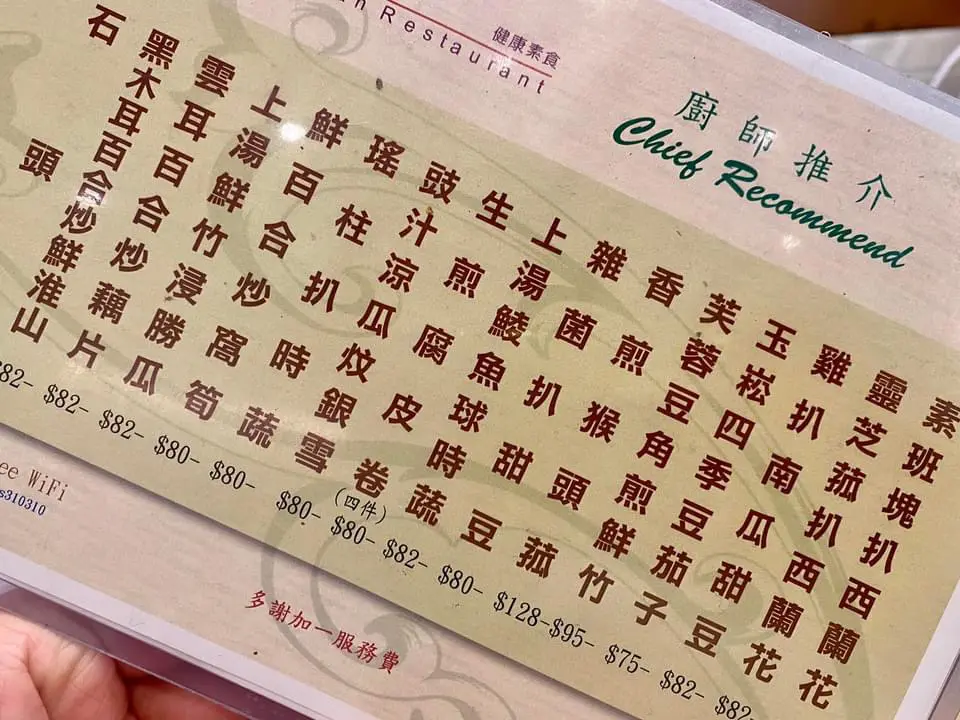 n Restaurant
健康素食
廚師推介
Chief Recommend
素班塊扒西蘭花
靈芝菇扒西蘭花
雞扒南瓜甜豆
玉崧四季豆茄子
芙蓉豆角煎鮮竹
香煎猴頭菇
雜菌扒甜豆
上湯鯪魚球時蔬
生煎腐皮卷
(四件)
豉汁涼瓜炆銀雪
瑤柱扒時蔬
鮮百合炒窩筍
上湯鮮竹浸勝瓜
雲耳百合炒藕片
黑木耳百合炒鮮淮山
石頭
82- $82- $82- $80- $80- $80- $80- $82- $80- $128- $95- $75- $82- $82-
ee WiFi
s310310
多謝加一服務費